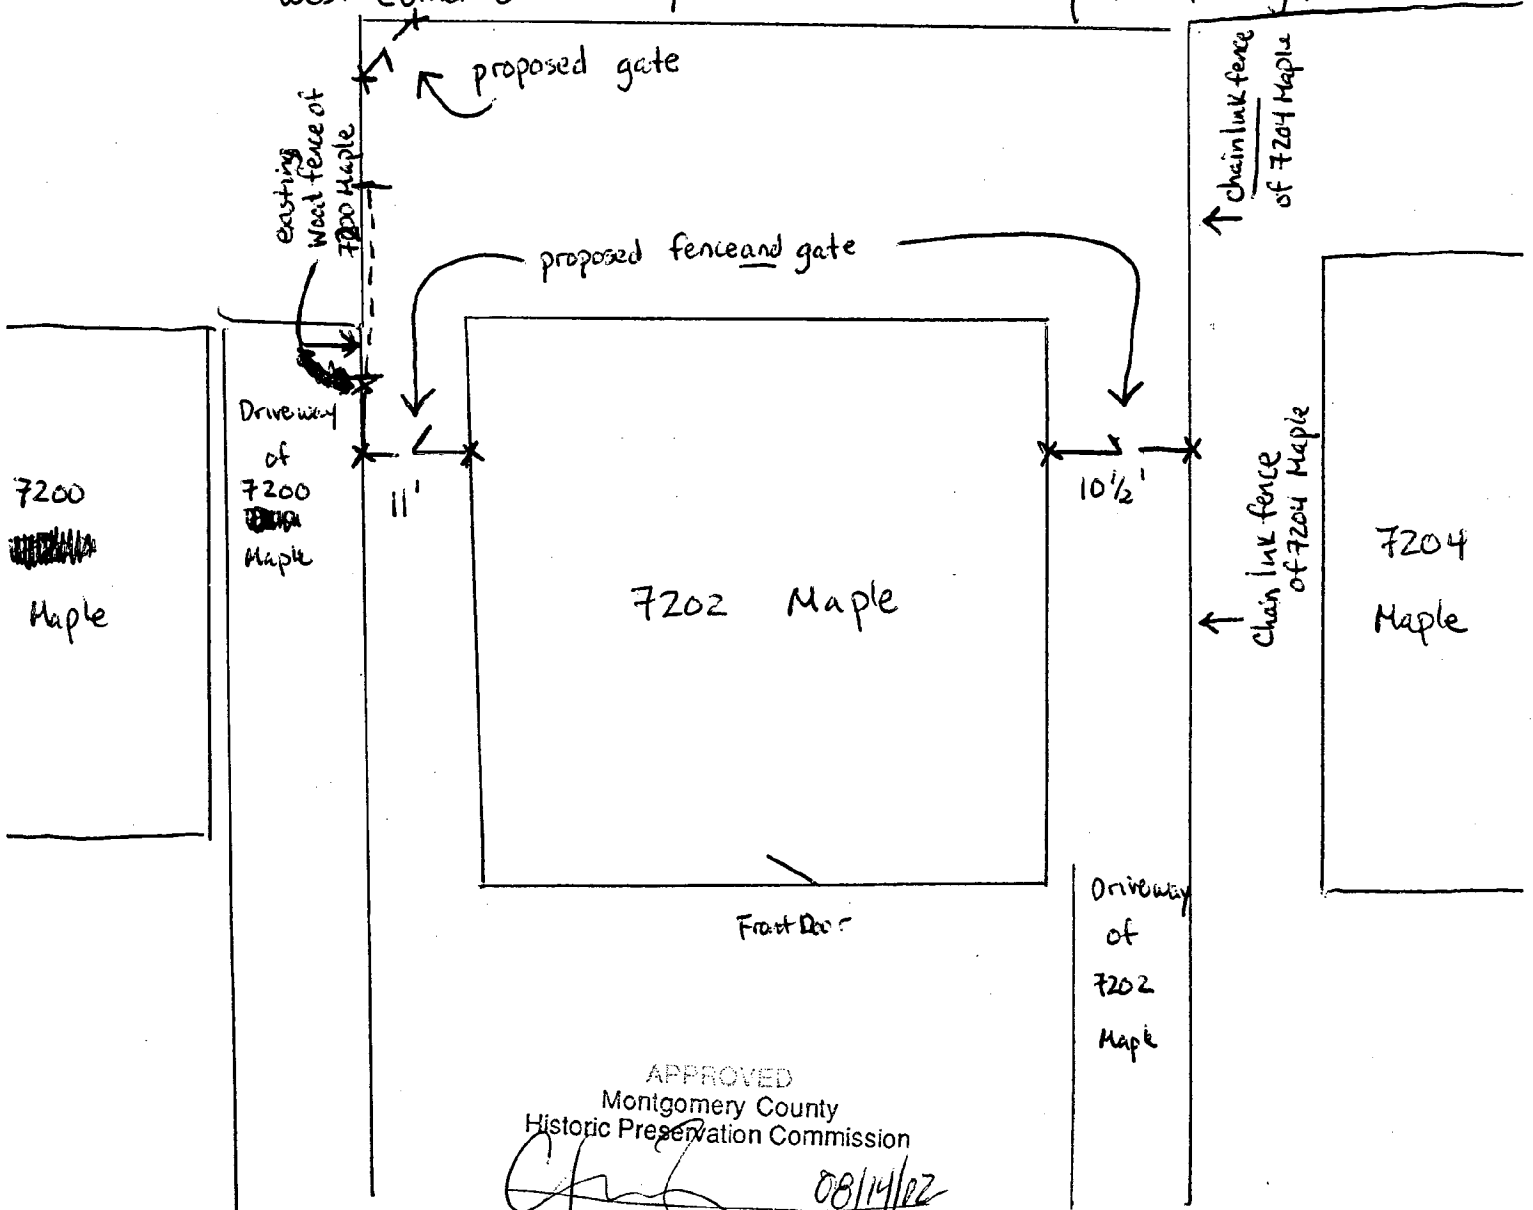 West Corner
proposed gate
existing
wood fence of
7200 Maple
Chain link fence
of 7204 Maple
proposed fence and gate
Driveway
of
7200
Maple
7200
Maple
11'
10 1/2'
7202 Maple
Chain link fence
of 7204 Maple
7204
Maple
Front Door
Driveway
of
7202
Maple
APPROVED
Montgomery County
Historic Preservation Commission
08/14/02